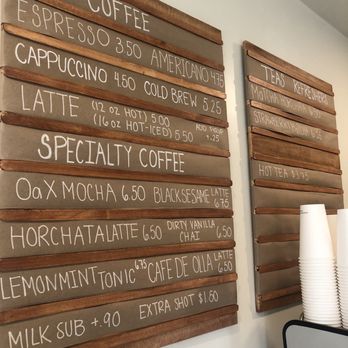 COFFEE
ESPRESSO 3.50 AMERICANO 4.75
CAPPUCCINO 4.50 COLD BREW 5.25
LATTE (12 oz HOT) 5.00 ADD
(16 oz HOT-ICED) 5.50 +.25
SPECIALTY COFFEE
OaX MOCHA 6.50 BLACK SESAME LATTE 6.75
HORCHATA LATTE 6.50 DIRTY VANILLA CHAI 6.50
LEMON MINT TONIC 6.75 CAFE DE OLLA LATTE 6.50
MILK SUB +.90 EXTRA SHOT $1.50
TEAS REFRESHERS
MATCHA
STRAWBERRY
HOT TEA $3.75